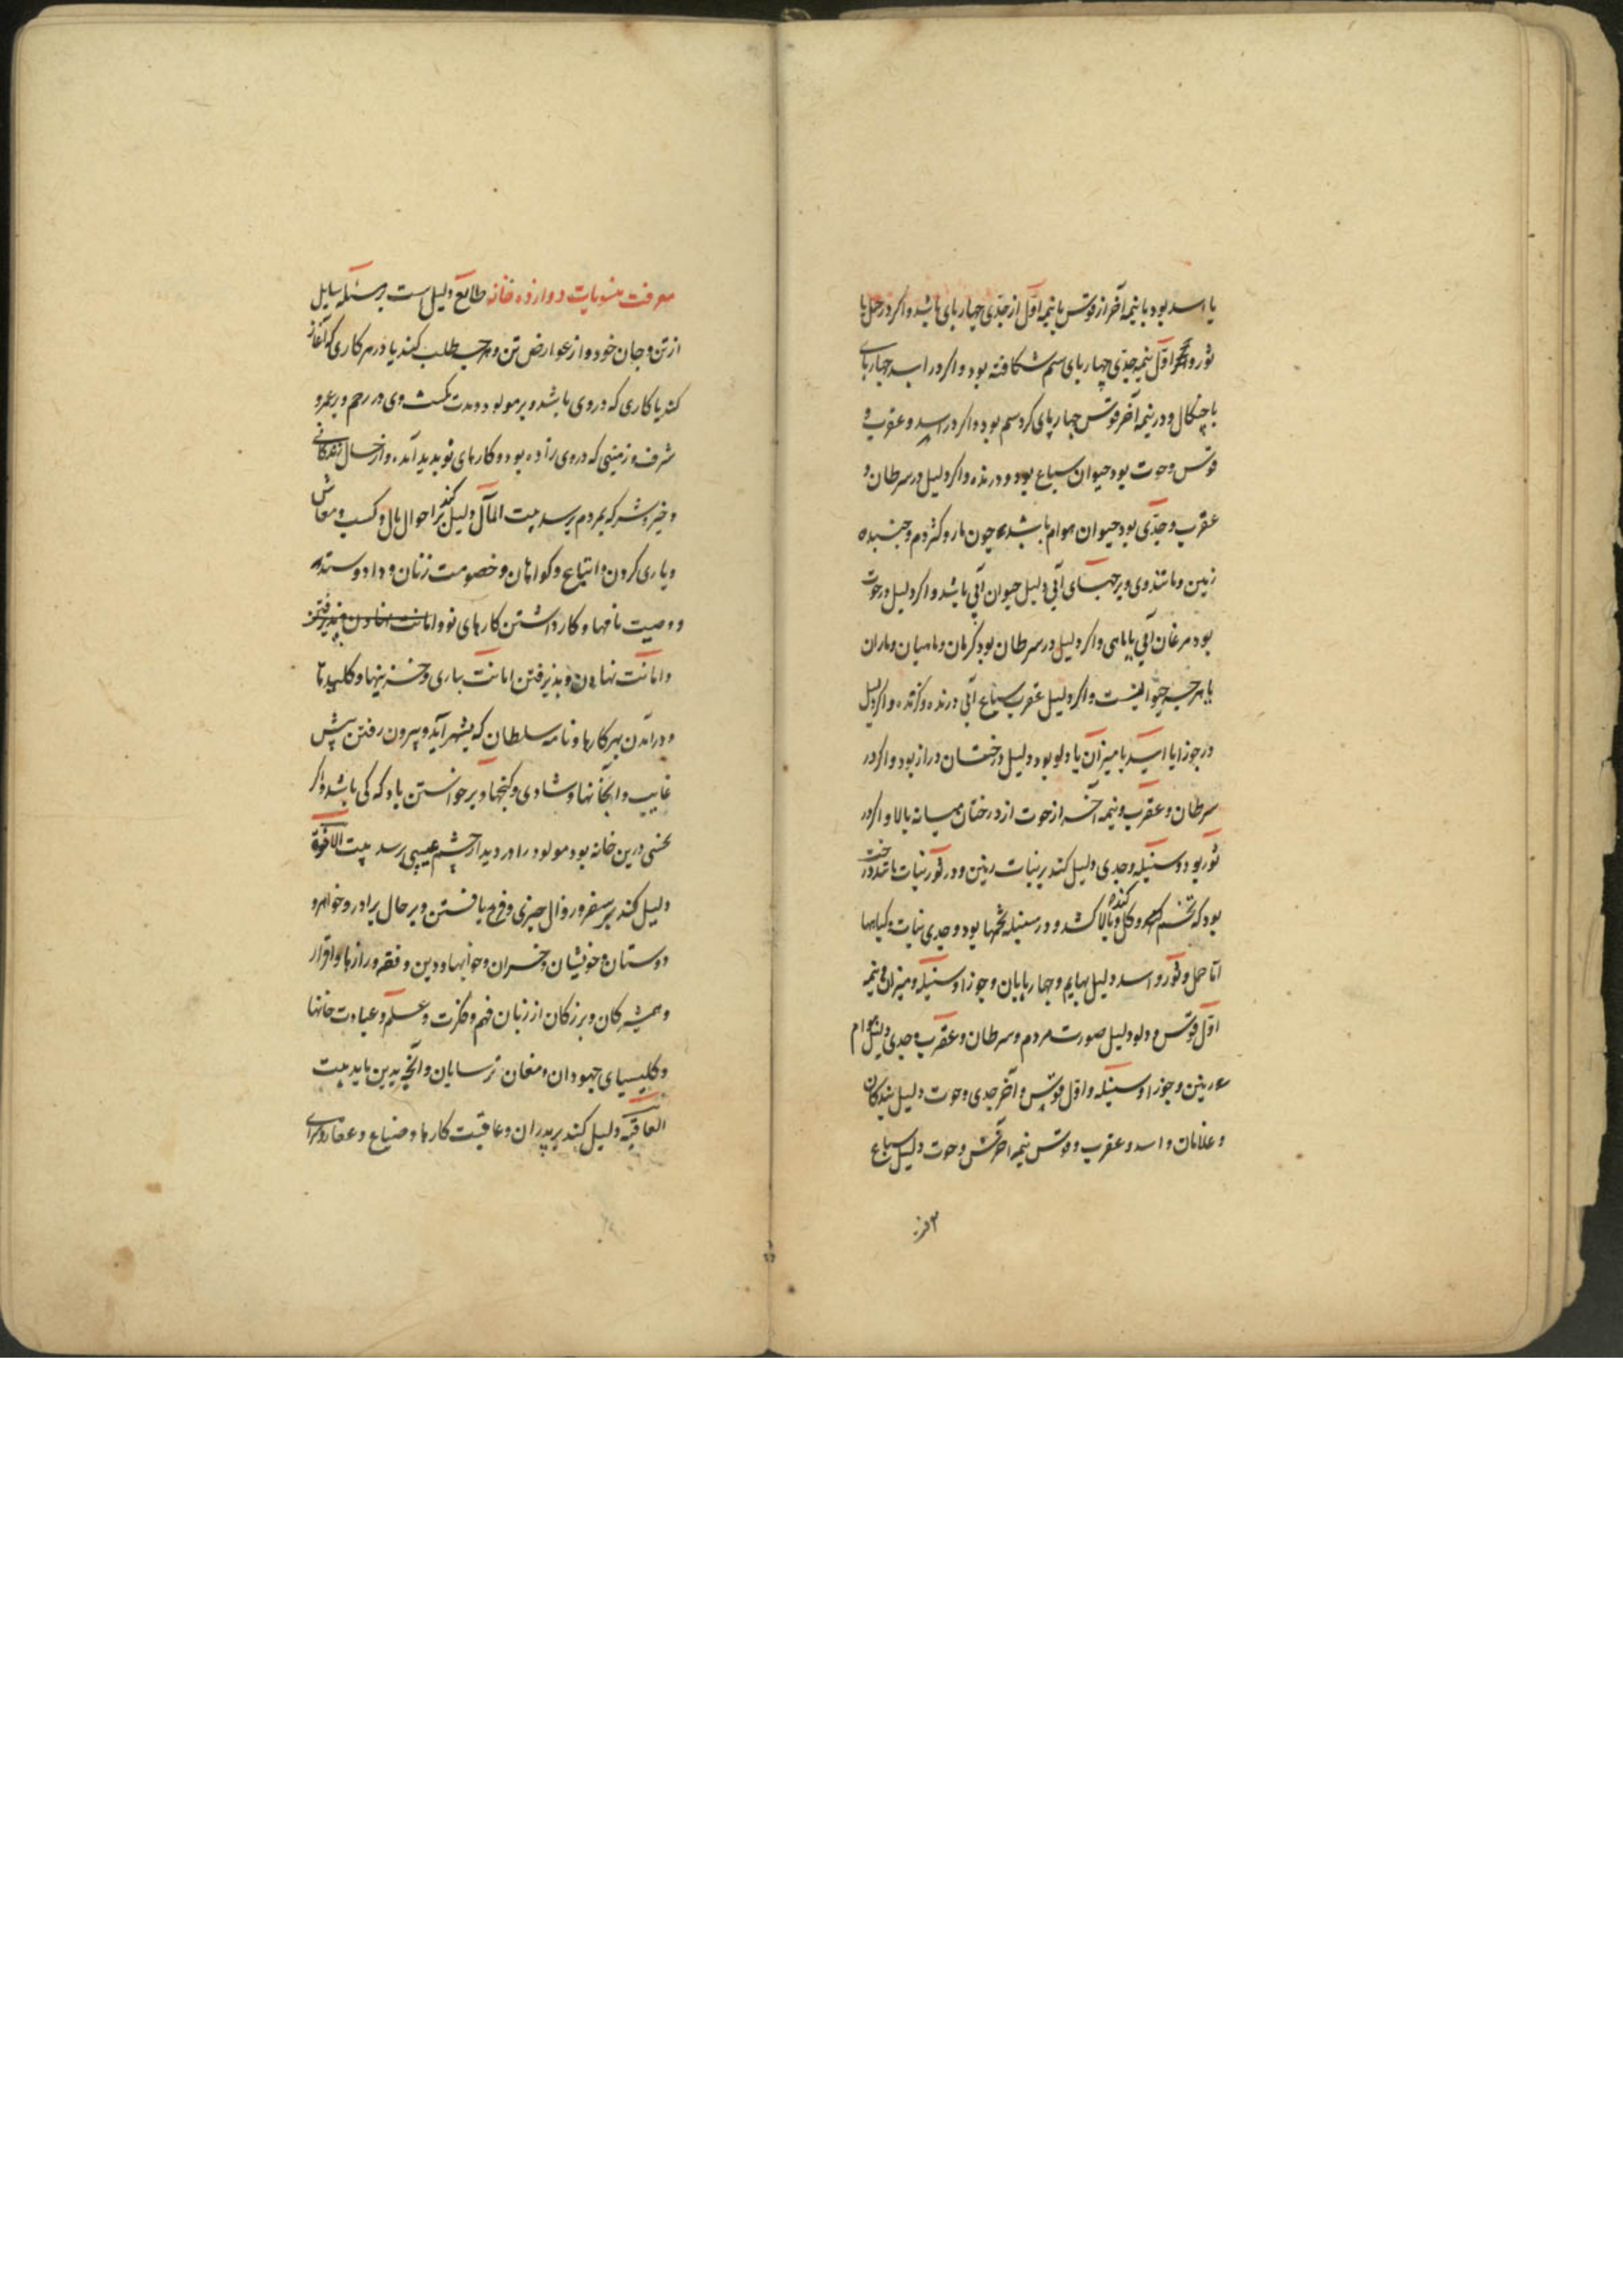 یا اسد بود یا نیمه آخر از قوس یا نیمه اول از جدی چهار پای باشد و اگر در حمل یا
ثور و اول نیمه جدی چهار پای سم شکافته بود و اگر در اسد چهارپای
با چنگال و در نیمه آخر قوس چهار پای گرد سم بود و اگر در اسد و عقرب و
قوس و حوت بود حیوان سباع بود و درنده و اگر دلیل در سرطان و
عقرب و جدی بود حیوان هوام باشد چون مار و کژدم و جنبنده
زمین و مانند وی و برجهای آبی دلیل حیوان آبی باشد و اگر دلیل در حوت
بود مرغان آبی یا ماهی و اگر دلیل در سرطان بود کرمان و ماهیان و ماران
یا هرچه حیوانیست و اگر دلیل عقرب سباع آبی درنده و گزنده و اگر دلیل
در جوزا یا اسد یا میزان یا دلو بود دلیل درختان دراز بود و اگر در
سرطان و عقرب و نیمه آخر از حوت از درختان میانه بالا و اگر در
ثور بود و سنبله و جدی دلیل کند بر نبات زمین و در ثور نبات باشد درخت
بود که تخم و گل کنده و بالا کشد و در سنبله تخمها بود و جدی نبات و گیاهها
اما حمل و ثور و اسد دلیل بهایم و چهارپایان و جوزا و سنبله و میزان و نیمه
اول قوس و دلو دلیل صورت مردم و سرطان و عقرب و جدی دلیل هوام
زمین و جوزا و سنبله و اول قوس و آخر جدی و حوت دلیل بندگان
و غلامان و اسد و عقرب و قوس نیمه آخرش و حوت دلیل سباع
معرفت منسوبات دوازده خانه طالع دلیل است بر مسئله سایل
از تن و جان خود و از عوارض تن و هرچه طلب کند یا در هر کاری که آغاز
کند یا کاری که در وی باشد و بر مولود و مدت مکث وی در رحم و بر عمر و
شرف و زمینی که در وی زاده بود و کارهای نو پدید آمده و از حال زندگانی
و خیر و شر که بمردم برسد بیت المال دلیل کند بر احوال مال و کسب و معاش
و یاری کردن و اتباع و گواهان و خصومت زنان و داد و ستد
و وصیت نامها و کار داشتن کارهای نو و امانت نهادن و پذیرفتن
و امانت نهادن و پذیرفتن امانت یاری و خزینها و کلیدها
و درآمدن بهر کارها و نامه سلطان که بشهر آید و بیرون رفتن پیش
غایب و شادی و گنجها و برخواستن باد که کی باشد و اگر
نحسی درین خانه بود مولود را در دیدار چشم عیبی رسد بیت الاخوة
دلیل کند بر سفر و زوال چیزی و فرج یافتن و بر حال برادر و خواهر و
دوستان و خویشان و خسران و خوابها و دین و فقه و رازها و اقرار
و همشیرگان و بزرگان از زبان فهم و فکرت و علم و عبادت خانها
و کلیسیای جهودان و مغان ترسایان و آنچه بدین باید بیت
العاقبه دلیل کند بر پدران و عاقبت کارها و ضیاع و عقار و سرای